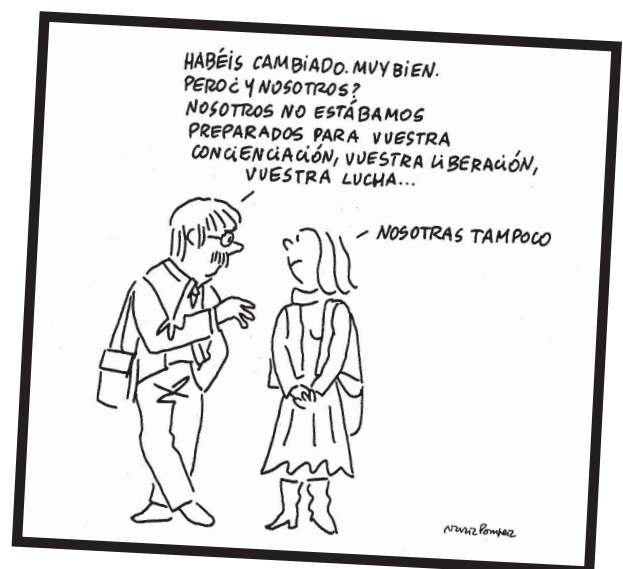 HABÉIS CAMBIADO. MUY BIEN.
PERO ¿Y NOSOTROS?
NOSOTROS NO ESTÁBAMOS
PREPARADOS PARA VUESTRA
CONCIENCIACIÓN, VUESTRA LIBERACIÓN,
VUESTRA LUCHA...
NOSOTRAS TAMPOCO
Núria Pompeia